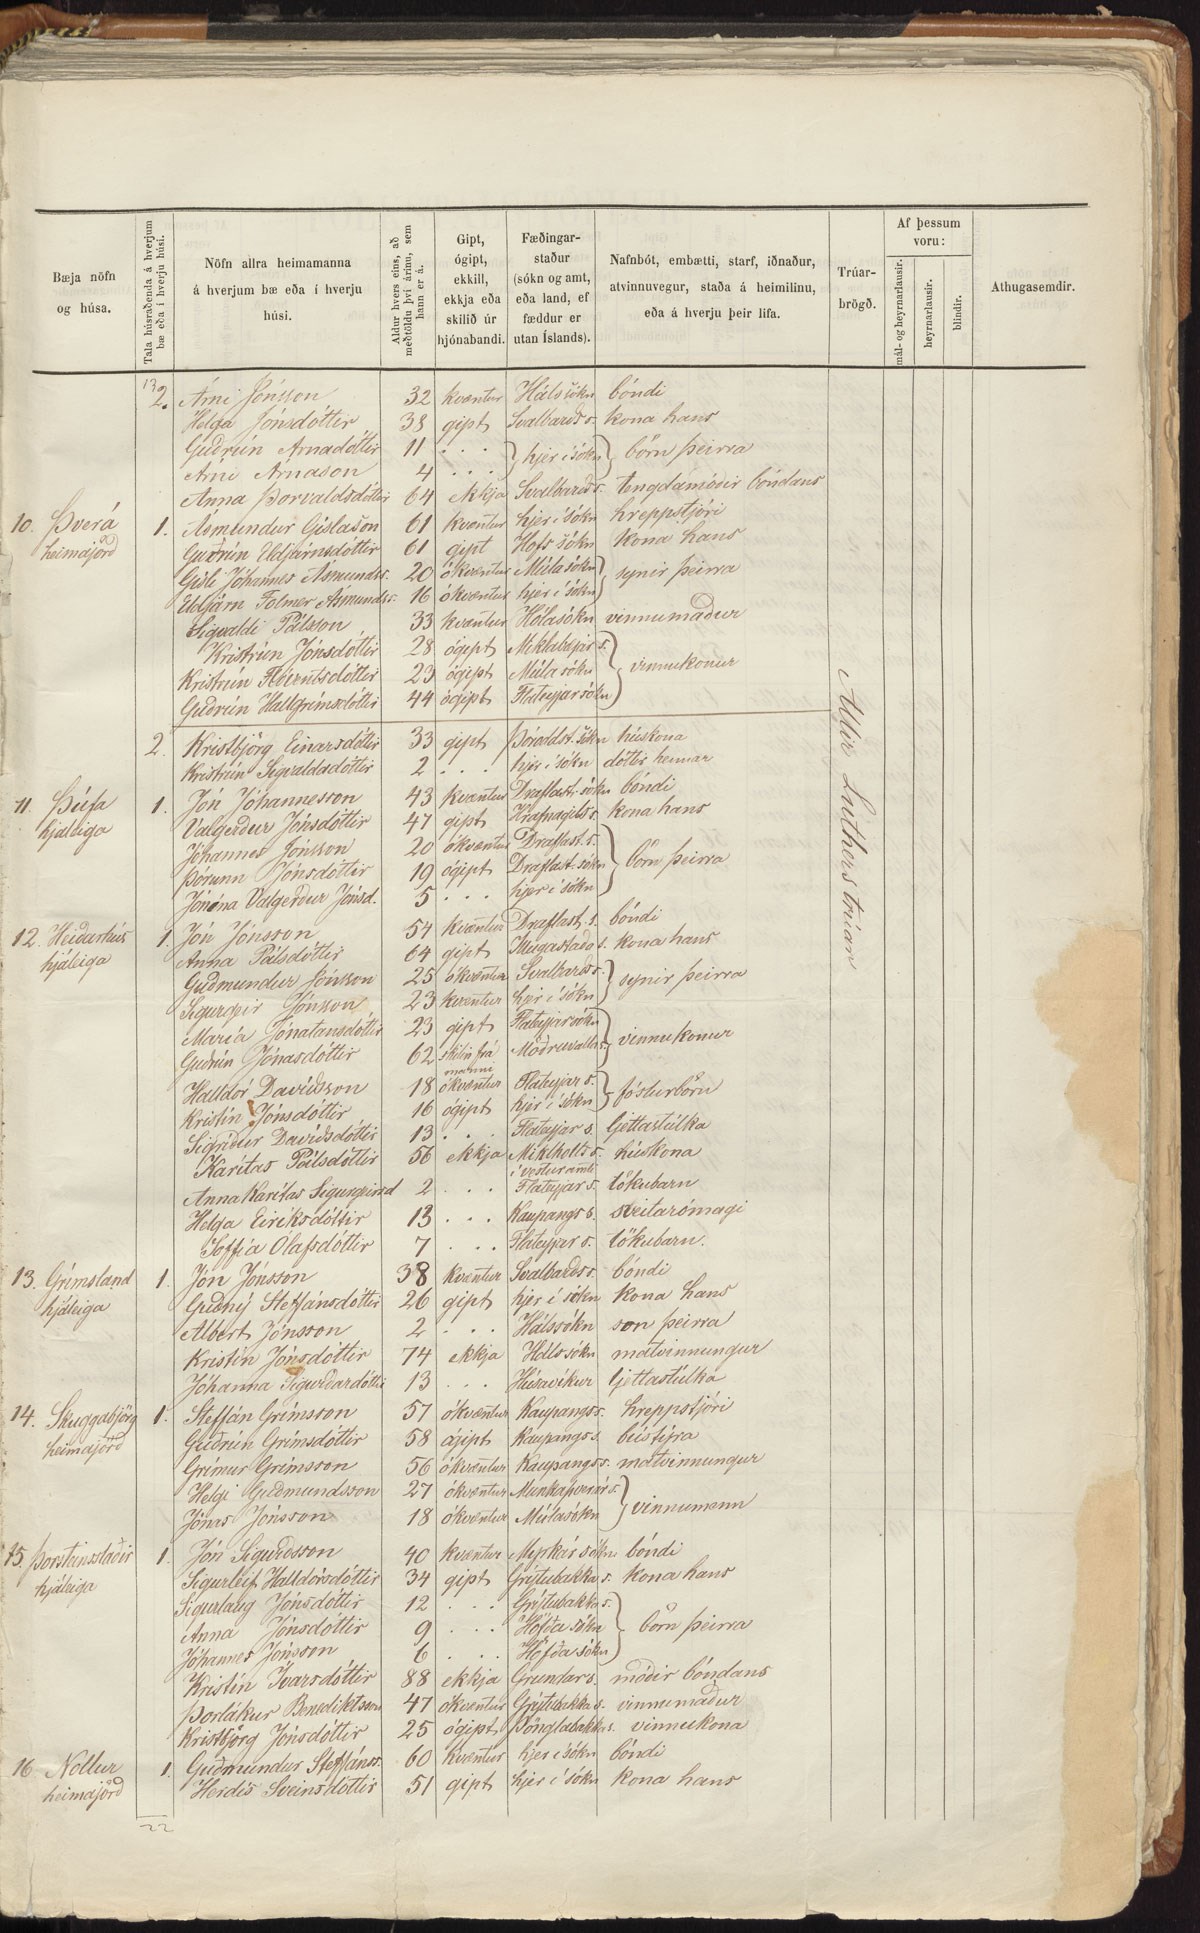 Bæja nöfn og húsa.
Tala húsráðenda á hverjum bæ eða í hverju húsi.
Nöfn allra heimamanna á hverjum bæ eða í hverju húsi.
Aldur hvers eins, að meðtöldu því árinu, sem hann er á.
Gipt, ógipt, ekkill, ekkja eða skilið úr hjónabandi.
Fæðingarstaður (sókn og amt, eða land, ef fæddur er utan Íslands).
Nafnbót, embætti, starf, iðnaður, atvinnuvegur, staða á heimilinu, eða á hverju þeir lifa.
Trúarbrögð.
Af þessum voru:
mál- og heyrnarlausir.
heyrnarlausir.
blindir.
Athugasemdir.
13
2. Árni Jónsson 32 kvæntur Hálssókn bóndi
Helga Jónsdóttir 38 gipt Svalbarðs s. kona hans
Guðrún Árnadóttir 11 . . . } hjer í sókn } börn þeirra
Árni Árnason 4 . . .
Anna Þorvaldsdóttir 64 ekkja Svalbarðs s. tengdamóðir bóndans
10. Þverá 1. Ásmundur Gíslason 61 kvæntur hjer í sókn hreppstjóri
heimajörð Guðrún Eldjárnsdóttir 61 gipt Hofs sókn kona hans
Gísli Jóhannes Ásmundss. 20 ókvæntur Múlasókn } synir þeirra
Eldjárn Folmer Ásmundss. 16 ókvæntur hjer í sókn
Sigvaldi Pálsson 33 kvæntur Hólasókn vinnumaður
Kristrún Jónsdóttir 28 ógipt Miklabæjar s. } vinnukonur
Kristrún Flóventsdóttir 23 ógipt Múlasókn
Guðrún Hallgrímsdóttir 44 ógipt Flateyjarsókn
2. Kristbjörg Einarsdóttir 33 gipt Þóroddst. sókn húskona
Kristrún Sigvaldadóttir 2 . . . hjer í sókn dóttir hennar
11. Þúfa 1. Jón Jóhannesson 43 kvæntur Draflast. sókn bóndi
hjáleiga Valgerður Jónsdóttir 47 gipt Hrafnagils s. kona hans
Jóhannes Jónsson 20 ókvæntur Draflast. s. } börn þeirra
Þórunn Jónsdóttir 19 ógipt Draflast. sókn
Jónína Valgerður Jónsd. 5 . . . hjer í sókn
12. Heiðarhús 1. Jón Jónsson 54 kvæntur Draflast. s. bóndi
hjáleiga Anna Pálsdóttir 64 gipt Illugastaða s. kona hans
Guðmundur Jónsson 25 ókvæntur Svalbarðs s. } synir þeirra
Sigurgeir Jónsson 23 kvæntur hjer í sókn
María Jónatansdóttir 23 gipt Flateyjarsókn } vinnukonur
Guðrún Jónasdóttir 62 skilin frá manni Möðruvalla s.
Halldór Davíðsson 18 ókvæntur Flateyjar s. } fósturbörn
Kristín Jónsdóttir 16 ógipt hjer í sókn
Sigríður Davíðsdóttir 13 . . . Flateyjar s. ljettastúlka
Karítas Pálsdóttir 56 ekkja Miklholts s. í vesturamti húskona
Anna Karítas Sigurgeirsd 2 . . . Flateyjar s. tökubarn
Helga Eiríksdóttir 13 . . . Kaupangs s. sveitarómagi
Soffía Ólafsdóttir 7 . . . Flateyjar s. tökubarn.
13. Grímsland 1. Jón Jónsson 38 kvæntur Svalbarðs s. bóndi
hjáleiga Guðný Steffánsdóttir 26 gipt hjer í sókn kona hans
Albert Jónsson 2 . . . Hálssókn son þeirra
Kristín Jónsdóttir 74 ekkja Hálssókn matvinnungur
Jóhanna Sigurðardóttir 13 . . . Húsavíkur ljettastúlka
14. Skuggabjörg 1. Steffán Grímsson 57 ókvæntur Kaupangs s. hreppstjóri
heimajörð Guðrún Grímsdóttir 58 ógipt Kaupangs s. bústýra
Grímur Grímsson 56 ókvæntur Kaupangs s. matvinnungur
Helgi Guðmundsson 27 ókvæntur Munkaþverár s. } vinnumenn
Jónas Jónsson 18 ókvæntur Múlasókn
15. Þorsteinsstaðir 1. Jón Sigurðsson 40 kvæntur Myrkár sókn bóndi
hjáleiga Sigurleif Halldórsdóttir 34 gipt Grýtubakka s. kona hans
Sigurlaug Jónsdóttir 12 . . . Grýtubakka s. } börn þeirra
Anna Jónsdóttir 9 . . . Höfða sókn
Jóhannes Jónsson 6 . . . Höfða sókn
Kristín Ívarsdóttir 88 ekkja Grundar s. móðir bóndans
Þorlákur Benediktsson 47 ókvæntur Grýtubakka s. vinnumaður
Kristbjörg Jónsdóttir 25 ógipt Þönglabakka s. vinnukona
16 Nollur 1. Guðmundur Steffánss. 60 kvæntur hjer í sókn bóndi
heimajörð Herdís Sveinsdóttir 51 gipt hjer í sókn kona hans
22
Allir Lúthers trúar